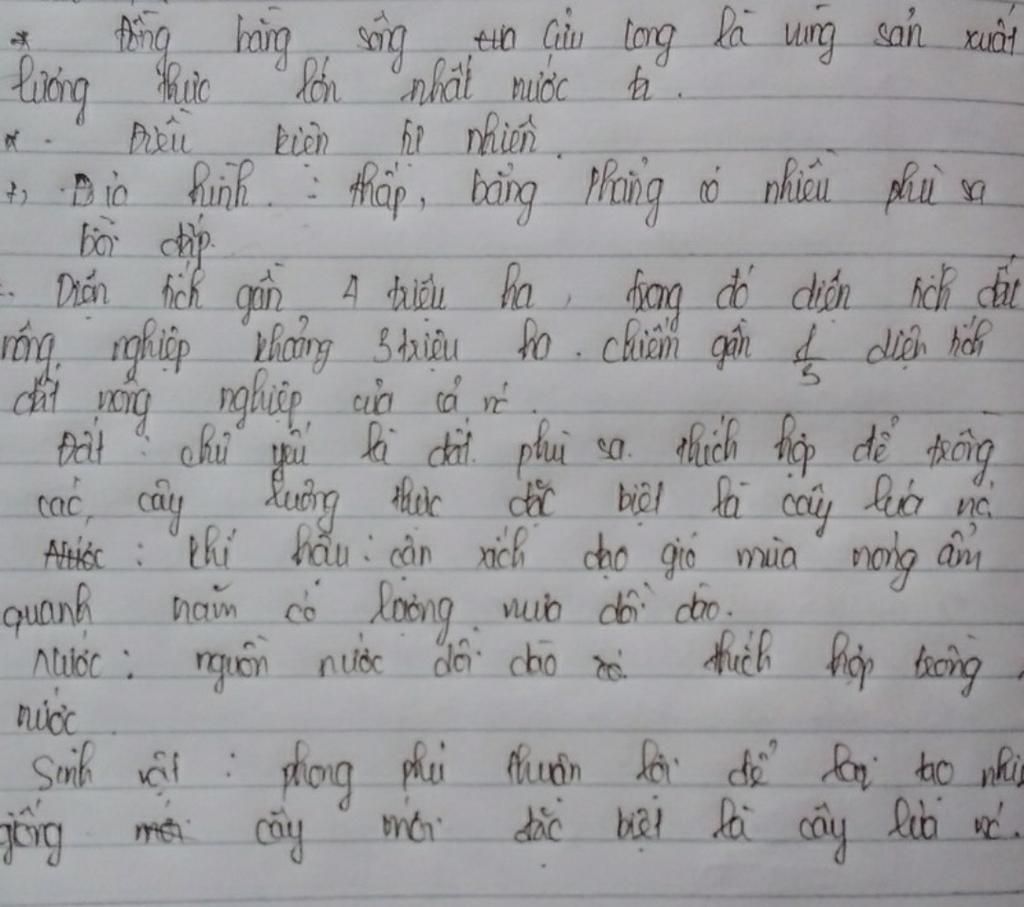 * Đồng bằng sông Cửu Long là vùng sản xuất
lương thực lớn nhất nước ta.
* . Điều kiện tự nhiên.
+, Địa hình : thấp, bằng phẳng có nhiều phù sa
bồi đắp.
. Diện tích gần 4 triệu ha, trong đó diện tích đất
nông nghiệp khoảng 3 triệu ha. chiếm gần 1/3 diện tích
đất nông nghiệp của cả nc.
Đất : chủ yếu là đất phù sa. thích hợp để trồng
các cây lương thực đặc biệt là cây lúa nc.
Nước : khí hậu : cận xích đạo gió mùa nóng ẩm
quanh năm có lượng mưa dồi dào.
Nước : nguồn nước dồi dào thích hợp trồng
nước
Sinh vật : phong phú thuận lợi để lai tạo nhiều
giống mới cây mới đặc biệt là cây lúa nc.